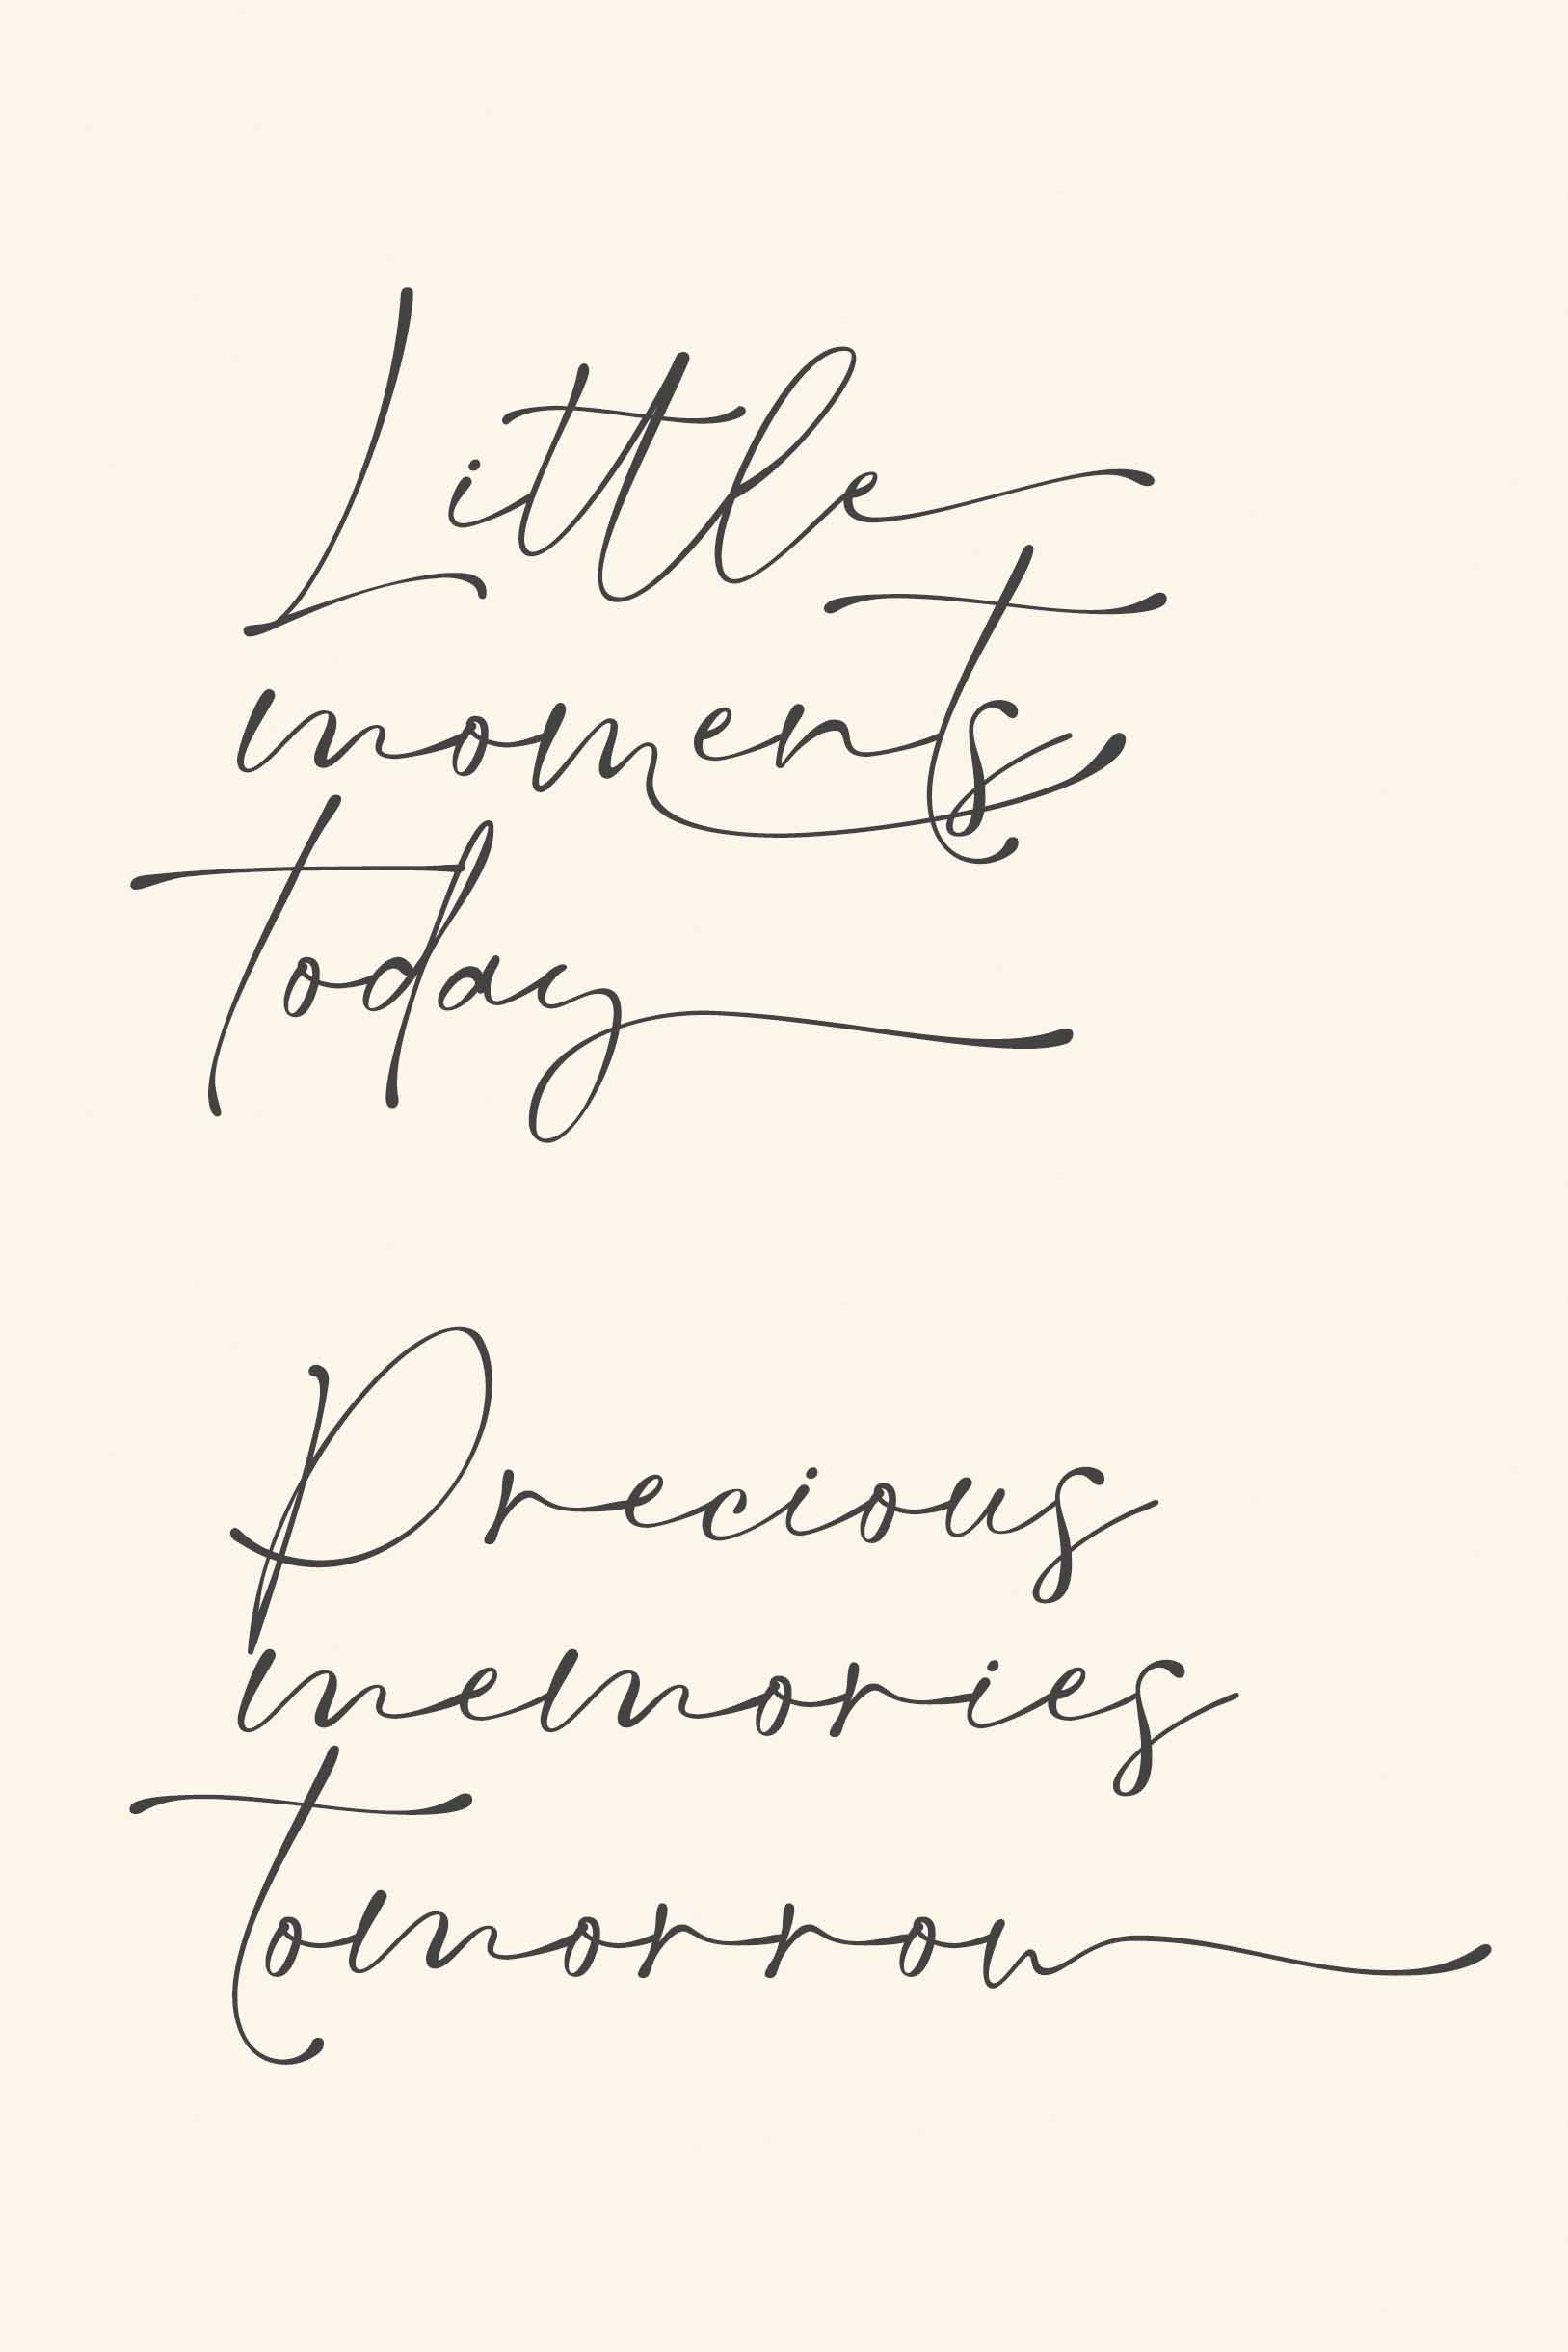 Little
moments
today
Precious
memories
tomorrow